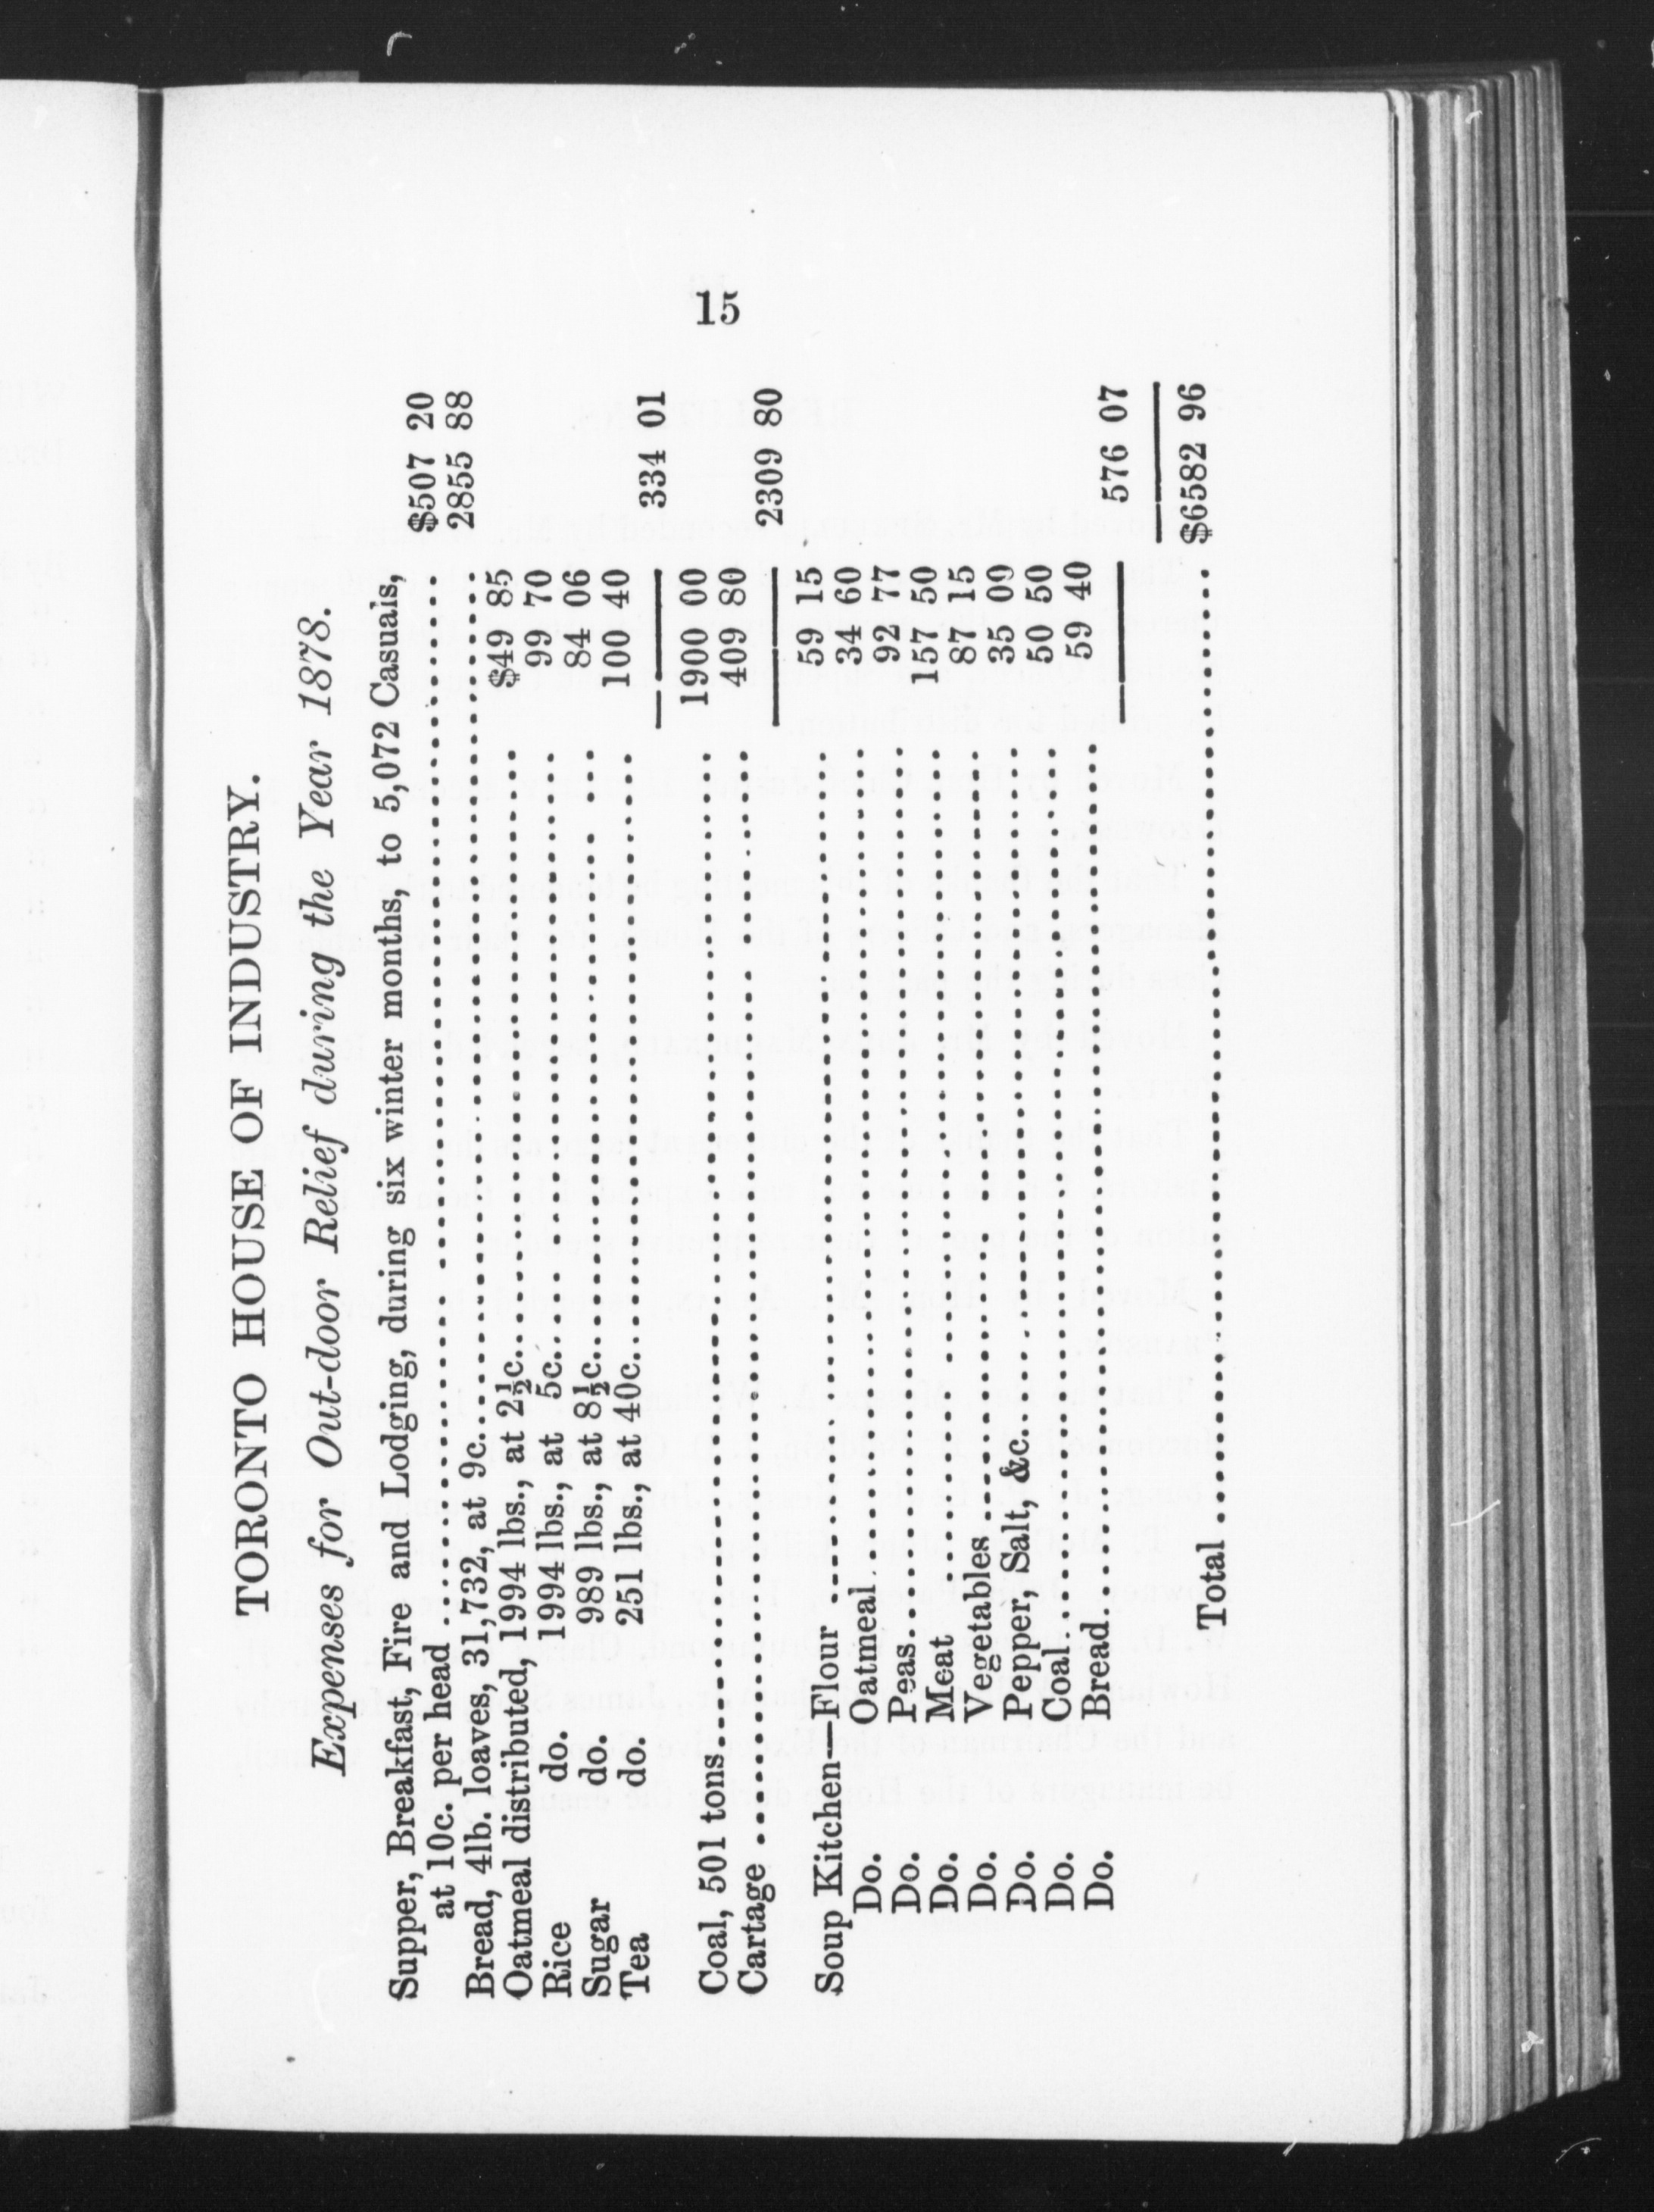 15
TORONTO HOUSE OF INDUSTRY.
Expenses for Out-door Relief during the Year 1878.
Supper, Breakfast, Fire and Lodging, during six winter months, to 5,072 Casuals,
at 10c. per head ........ $507 20
Bread, 4lb. loaves, 31,732, at 9c. ........ 2855 88
Oatmeal distributed, 1994 lbs., at 2½c. ........ $49 85
Rice do. 1994 lbs., at 5c. ........ 99 70
Sugar do. 989 lbs., at 8½c. ........ 84 06
Tea do. 251 lbs., at 40c. ........ 100 40
334 01
Coal, 501 tons ........ 1900 00
Cartage ........ 409 80
2309 80
Soup Kitchen—Flour ........ 59 15
Do. Oatmeal ........ 34 60
Do. Peas ........ 92 77
Do. Meat ........ 157 50
Do. Vegetables ........ 87 15
Do. Pepper, Salt, &c. ........ 35 09
Do. Coal ........ 50 50
Do. Bread ........ 59 40
576 07
Total ........ $6582 96